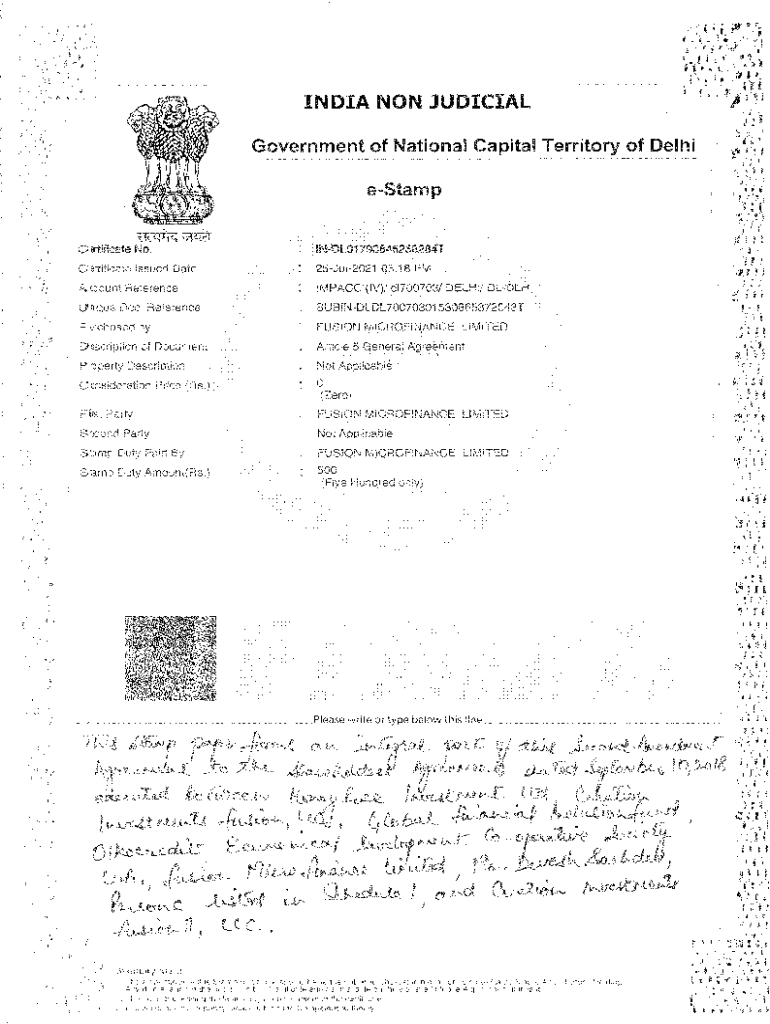 INDIA NON JUDICIAL
Government of National Capital Territory of Delhi
e-Stamp
सत्यमेव जयते
Certificate No. :
Certificate Issued Date : 03.16 PM
Account Reference : IMPACC (IV)/ dl700703/ DELHI/ DL-DLH
Unique Doc. Reference :
Purchased by : FUSION MICROFINANCE LIMITED
Description of Document : Article 5 General Agreement
Property Description : Not Applicable
Consideration Price (Rs.) : 0
(Zero)
First Party : FUSION MICROFINANCE LIMITED
Second Party : Not Applicable
Stamp Duty Paid By : FUSION MICROFINANCE LIMITED
Stamp Duty Amount(Rs.) : 500
(Five Hundred only)
Please write or type below this line
This stamp paper forms an integral part of this Second Amendment
Agreement to the Shareholders Agreement dated September 10, 2018
executed between Honey Rose Investment Ltd, Creation
Investments Fusion, LLC, Global Financial Inclusion Fund,
Oikocredit Ecumenical Development Co-operative Society
U.A., Fusion Micro Finance Limited, Mr. Devesh Sachdev,
Persons listed in Schedule I, and Creation Investments
Fusion II, LLC.